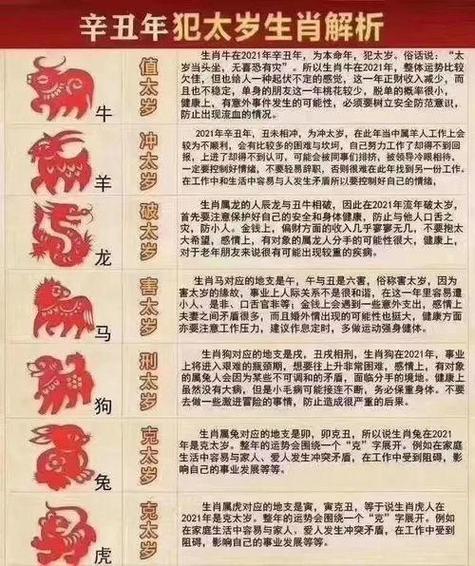 辛丑年 犯太岁生肖解析
牛
值太岁
生肖牛在2021年辛丑年，为本命年，犯太岁。俗话说：“太
岁当头坐，无喜恐有灾”。所以生肖牛在2021年，整体运势比较
欠佳，但也给人一种起伏不定的感觉，这一年正财收入减少，而
且也不稳定，单身的朋友这一年桃花较少，脱单的概率很小，
健康上，有意外事件发生的可能性，必须要树立安全防范意识，
防止出现流血的情况。
羊
冲太岁
2021年辛丑年，丑未相冲，为冲太岁，在此年当中属羊人工作上会
较为不顺利，会有比较多的困难与坎坷，自己努力工作了却得不到回
报，上进了却得不到认可，可能会被同事们排挤，被领导冷眼相待，
一定要控制好情绪，不要轻易辞职，否则很难在此年找到另一份工作。
在工作中和生活中容易与人发生矛盾所以要控制好自己的情绪，
龙
破太岁
生肖属龙的人辰龙与丑牛相破，因此在2021年流年破太岁，
首先要注意保护好自己的安全和身体健康，防止与他人口舌之
灾，防小人。金钱上，偏财方面的收入几乎寥寥无几，不要抱太
大希望，感情上，有对象的属龙人分手的可能性很大，健康上，
对于老年朋友来说很有可能出现较重的疾病。
马
害太岁
生肖马对应的地支是午，午与丑是六害，俗称害太岁，因为
害太岁的缘故，事业上人际关系不是很和谐，在这一年里容易遭
小人、是非、口舌官非等；金钱上会遇到一些意外支出，感情上
夫妻之间矛盾很多，而且婚外情出现的可能性也挺大，健康方面
亦要注意工作压力，建议作息定时，多做运动强身健体。
狗
刑太岁
生肖狗对应的地支是戌，丑戌相刑，生肖狗在2021年，事业
上将进入艰难的瓶颈期，想要往上升非常困难，感情上，有对象
的属兔人会因为某些不可调和的矛盾，面临分手的境地。健康上
虽然没有大病，但是小毛病可能接连不断，务必保重身体。不要
去做一些激进冒险的事情，防止造成很严重的后果。
兔
克太岁
生肖属兔对应的地支是卯，卯克丑，所以说生肖兔在2021
年是克太岁。整年的运势会围绕一个“克”字展开。例如在家庭
生活中容易与家人、爱人发生冲突矛盾，在工作中受到阻碍，影
响自己的事业发展等等。
虎
克太岁
生肖属虎对应的地支是寅，寅克丑，等于说生肖虎人在
2021年是克太岁。整年的运势会围绕一个“克”字展开。例如在
家庭生活中容易与家人、爱人发生冲突矛盾，在工作中受到阻碍，
影响自己的事业发展等等。